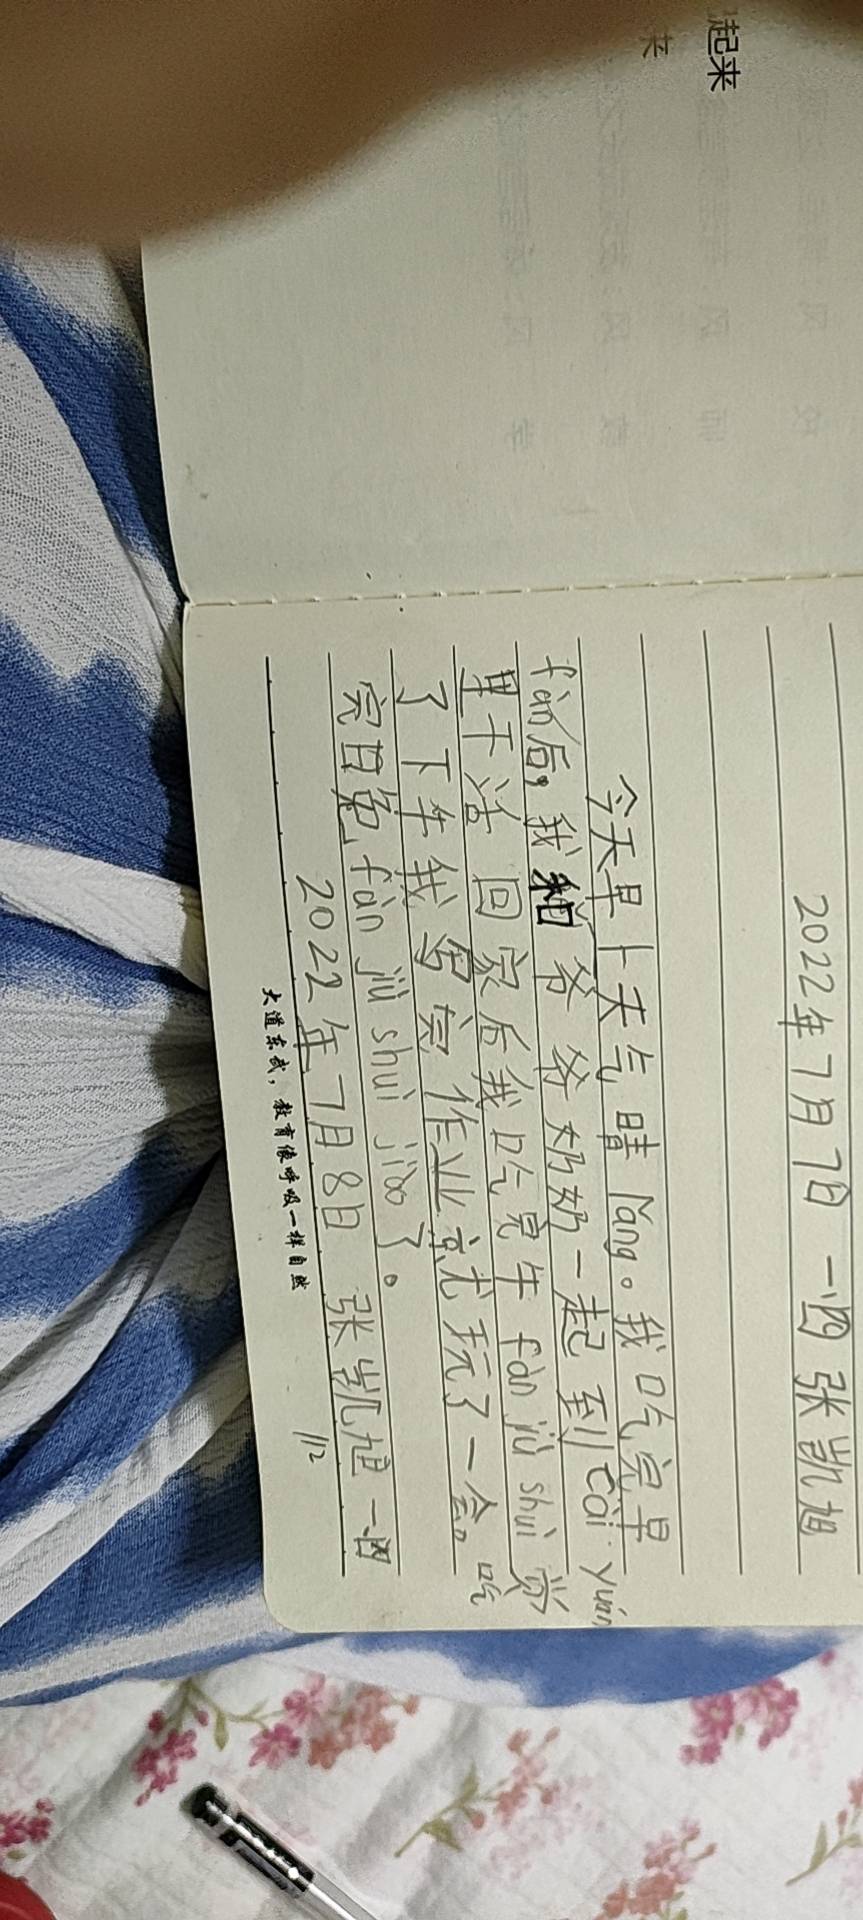 起来
来
2022年7月7日 一四 张凯旭
今天早上天气晴lǎng。我吃完早
fàn后，我和爷爷奶奶一起到cài yuán
里干活 回家后我吃完午fàn jiù shuì 觉
了下午我写完作业就玩了一会。吃
完日免fàn jiù shuì jiào了。
2022年7月8日 张凯旭 一四
大道东武，教育像呼吸一样自然
112